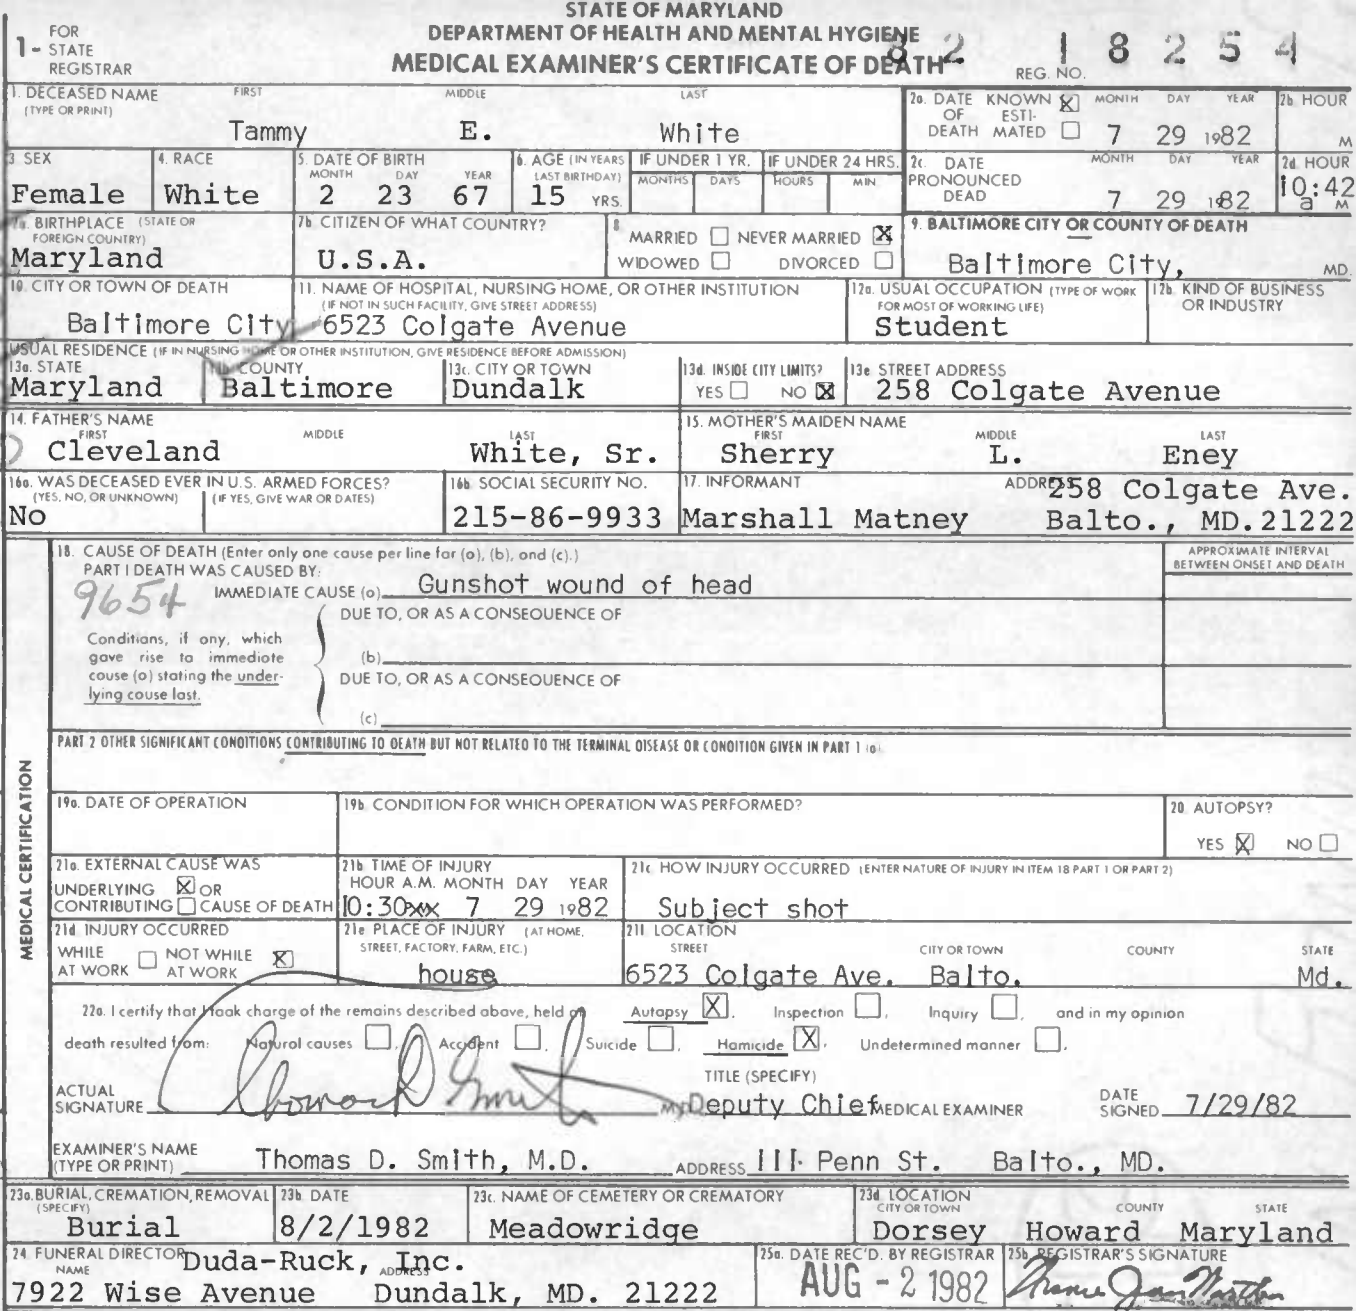 STATE OF MARYLAND
DEPARTMENT OF HEALTH AND MENTAL HYGIENE
MEDICAL EXAMINER'S CERTIFICATE OF DEATH
1 - FOR STATE REGISTRAR
REG. NO. 82 18254
1. DECEASED NAME (TYPE OR PRINT) FIRST MIDDLE LAST
Tammy E. White
2a. DATE OF DEATH KNOWN X ESTIMATED MONTH DAY YEAR
7 29 1982
2b. HOUR M
3. SEX
Female
4. RACE
White
5. DATE OF BIRTH MONTH DAY YEAR
2 23 67
6. AGE (IN YEARS LAST BIRTHDAY)
15 YRS.
IF UNDER 1 YR. MONTHS DAYS
IF UNDER 24 HRS. HOURS MIN.
2c. DATE PRONOUNCED DEAD MONTH DAY YEAR
7 29 1982
2d. HOUR
10:42 a M
7a. BIRTHPLACE (STATE OR FOREIGN COUNTRY)
Maryland
7b. CITIZEN OF WHAT COUNTRY?
U.S.A.
8. MARRIED NEVER MARRIED X
WIDOWED DIVORCED
9. BALTIMORE CITY OR COUNTY OF DEATH
Baltimore City, MD.
10. CITY OR TOWN OF DEATH
Baltimore City
11. NAME OF HOSPITAL, NURSING HOME, OR OTHER INSTITUTION
(IF NOT IN SUCH FACILITY, GIVE STREET ADDRESS)
6523 Colgate Avenue
12a. USUAL OCCUPATION (TYPE OF WORK FOR MOST OF WORKING LIFE)
Student
12b. KIND OF BUSINESS OR INDUSTRY
USUAL RESIDENCE (IF IN NURSING HOME OR OTHER INSTITUTION, GIVE RESIDENCE BEFORE ADMISSION)
13a. STATE
Maryland
13b. COUNTY
Baltimore
13c. CITY OR TOWN
Dundalk
13d. INSIDE CITY LIMITS?
YES NO X
13e. STREET ADDRESS
258 Colgate Avenue
14. FATHER'S NAME
FIRST MIDDLE LAST
Cleveland White, Sr.
15. MOTHER'S MAIDEN NAME
FIRST MIDDLE LAST
Sherry L. Eney
16a. WAS DECEASED EVER IN U.S. ARMED FORCES?
(YES, NO, OR UNKNOWN) (IF YES, GIVE WAR OR DATES)
No
16b. SOCIAL SECURITY NO.
215-86-9933
17. INFORMANT ADDRESS
Marshall Matney
258 Colgate Ave.
Balto., MD. 21222
MEDICAL CERTIFICATION
18. CAUSE OF DEATH (Enter only one cause per line for (a), (b), and (c).)
PART I DEATH WAS CAUSED BY:
APPROXIMATE INTERVAL BETWEEN ONSET AND DEATH
9654
IMMEDIATE CAUSE (a) Gunshot wound of head
DUE TO, OR AS A CONSEQUENCE OF
Conditions, if any, which gave rise to immediate cause (a) stating the underlying cause last.
(b)
DUE TO, OR AS A CONSEQUENCE OF
(c)
PART 2 OTHER SIGNIFICANT CONDITIONS CONTRIBUTING TO DEATH BUT NOT RELATED TO THE TERMINAL DISEASE OR CONDITION GIVEN IN PART 1 (a).
19a. DATE OF OPERATION
19b. CONDITION FOR WHICH OPERATION WAS PERFORMED?
20. AUTOPSY?
YES X NO
21a. EXTERNAL CAUSE WAS
UNDERLYING X OR
CONTRIBUTING CAUSE OF DEATH
21b. TIME OF INJURY
HOUR A.M. MONTH DAY YEAR
10:30xx 7 29 1982
21c. HOW INJURY OCCURRED (ENTER NATURE OF INJURY IN ITEM 18 PART 1 OR PART 2)
Subject shot
21d. INJURY OCCURRED
WHILE AT WORK NOT WHILE AT WORK X
21e. PLACE OF INJURY (AT HOME, STREET, FACTORY, FARM, ETC.)
house
21f. LOCATION
STREET CITY OR TOWN COUNTY STATE
6523 Colgate Ave. Balto. Md.
22a. I certify that I took charge of the remains described above, held an Autopsy X, Inspection , Inquiry , and in my opinion
death resulted from: Natural causes , Accident , Suicide , Homicide X, Undetermined manner .
TITLE (SPECIFY)
ACTUAL SIGNATURE Thomas D Smith M.D. Deputy Chief MEDICAL EXAMINER
DATE SIGNED 7/29/82
EXAMINER'S NAME (TYPE OR PRINT) Thomas D. Smith, M.D. ADDRESS 111 Penn St. Balto., MD.
23a. BURIAL, CREMATION, REMOVAL (SPECIFY)
Burial
23b. DATE
8/2/1982
23c. NAME OF CEMETERY OR CREMATORY
Meadowridge
23d. LOCATION
CITY OR TOWN COUNTY STATE
Dorsey Howard Maryland
24. FUNERAL DIRECTOR
NAME ADDRESS
Duda-Ruck, Inc.
7922 Wise Avenue Dundalk, MD. 21222
25a. DATE REC'D. BY REGISTRAR
AUG - 2 1982
25b. REGISTRAR'S SIGNATURE